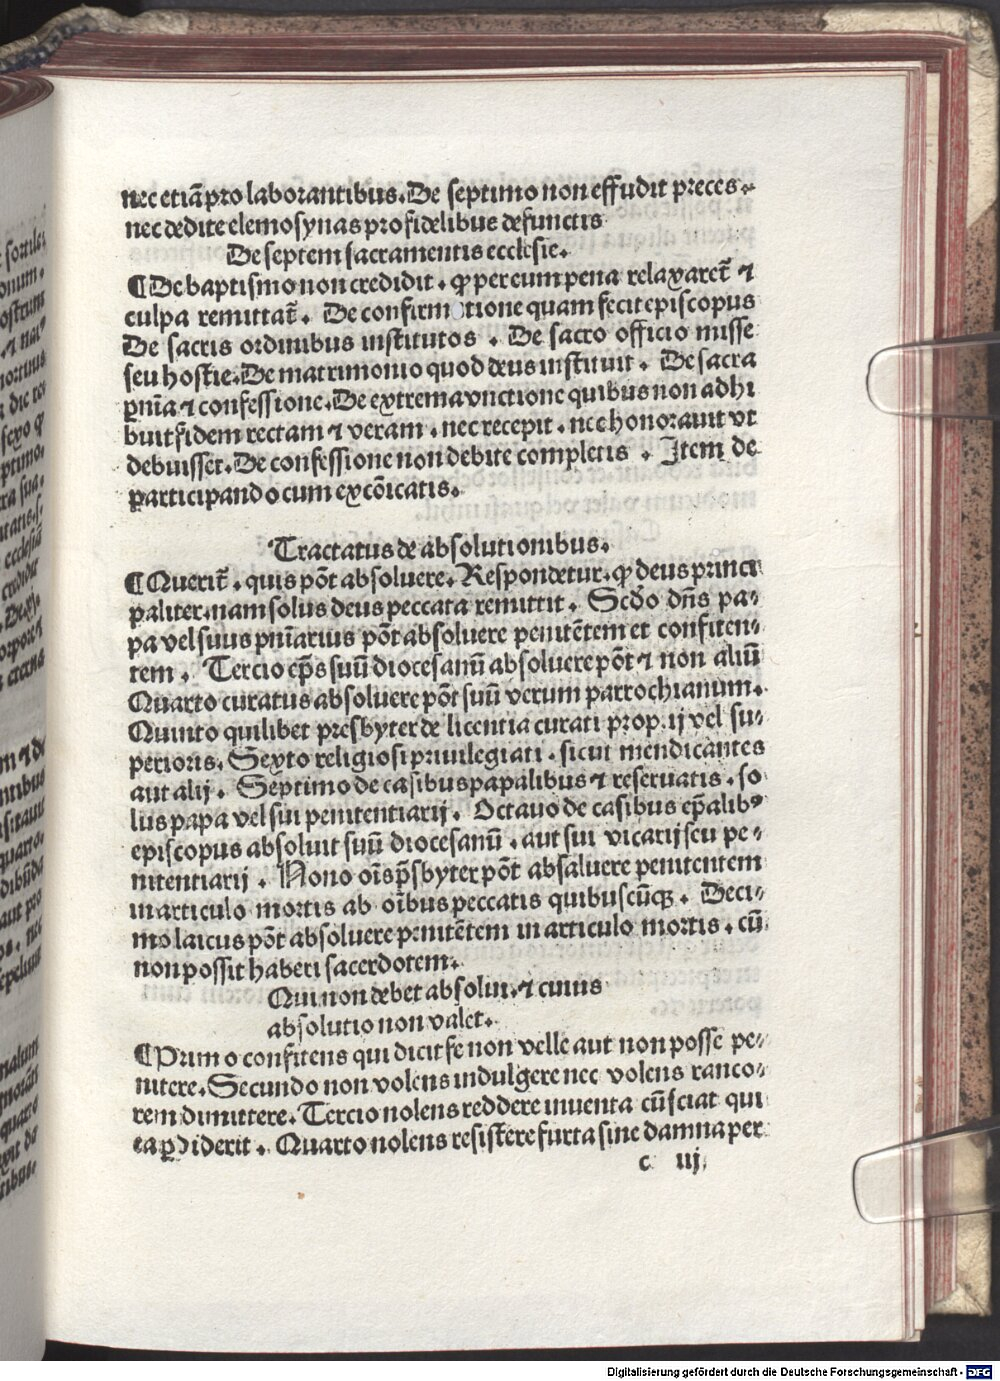 nec etiā pro laborantibus. De septimo non effudit preces
nec dedit elemosynas pro fidelibus defunctis
De septem sacramentis ecclesie.
¶ De baptismo non credidit. ꝙ per eum pena relaxaret̄ ⁊
culpa remittat̄. De confirm tione quam fecit episcopus
De sacris ordinibus institutos. De sacro officio misse
seu hostie. De matrimonio quod deus instituit. De sacra
pn̄ia ⁊ confessione. De extrema vnctione quibus non adhi
buit fidem rectam ⁊ veram. nec recepit. nec honorauit vt
debuisset. De confessione non debite completis. Item de
participando cum excōicatis.
Tractatus de absolutionibus.
¶ Querit̄. quis pōt absoluere. Respondetur. ꝙ deus princi
paliter. nam solus deus peccata remittit. Scd̄o dn̄s pa⸗
pa vel suus pnīarius pōt absoluere penitētem et confiten⸗
tem. Tercio ep̄s suū diocesanū absoluere pōt ⁊ non aliū
Quarto curatus absoluere pōt suū verum parrochianum.
Quinto quilibet presbyter de licentia curati prop ij vel su⸗
perioris. Sexto religiosi priuilegiati. sicut mendicantes
aut alij. Septimo de casibus papalibus ⁊ reseruatis. so
lus papa vel sui penitentiarij. Octauo de casibus ep̄alibꝰ
episcopus absoluit suū diocesanū. aut sui vicarij seu pe⸗
nitentiarij. Nono oīs p̄sbyter pōt absaluere penitentem
in articulo mortis ab oībus peccatis quibuscūqꝫ. Deci⸗
mo laicus pōt absoluere penitētem in articulo mortis. cū
non possit haberi sacerdotem.
Qui non debet absolui. ⁊ cuius
absolutio non valet.
¶ Primo confitens qui dicit se non velle aut non posse pe⸗
nitere. Secundo non volens indulgere nec volens ranco⸗
rem dimittere. Tercio nolens reddere inuenta cū sciat qui
ea ꝑdiderit. Quarto nolens resistere furta sine damna per
c iij
Digitalisierung gefördert durch die Deutsche Forschungsgemeinschaft - DFG